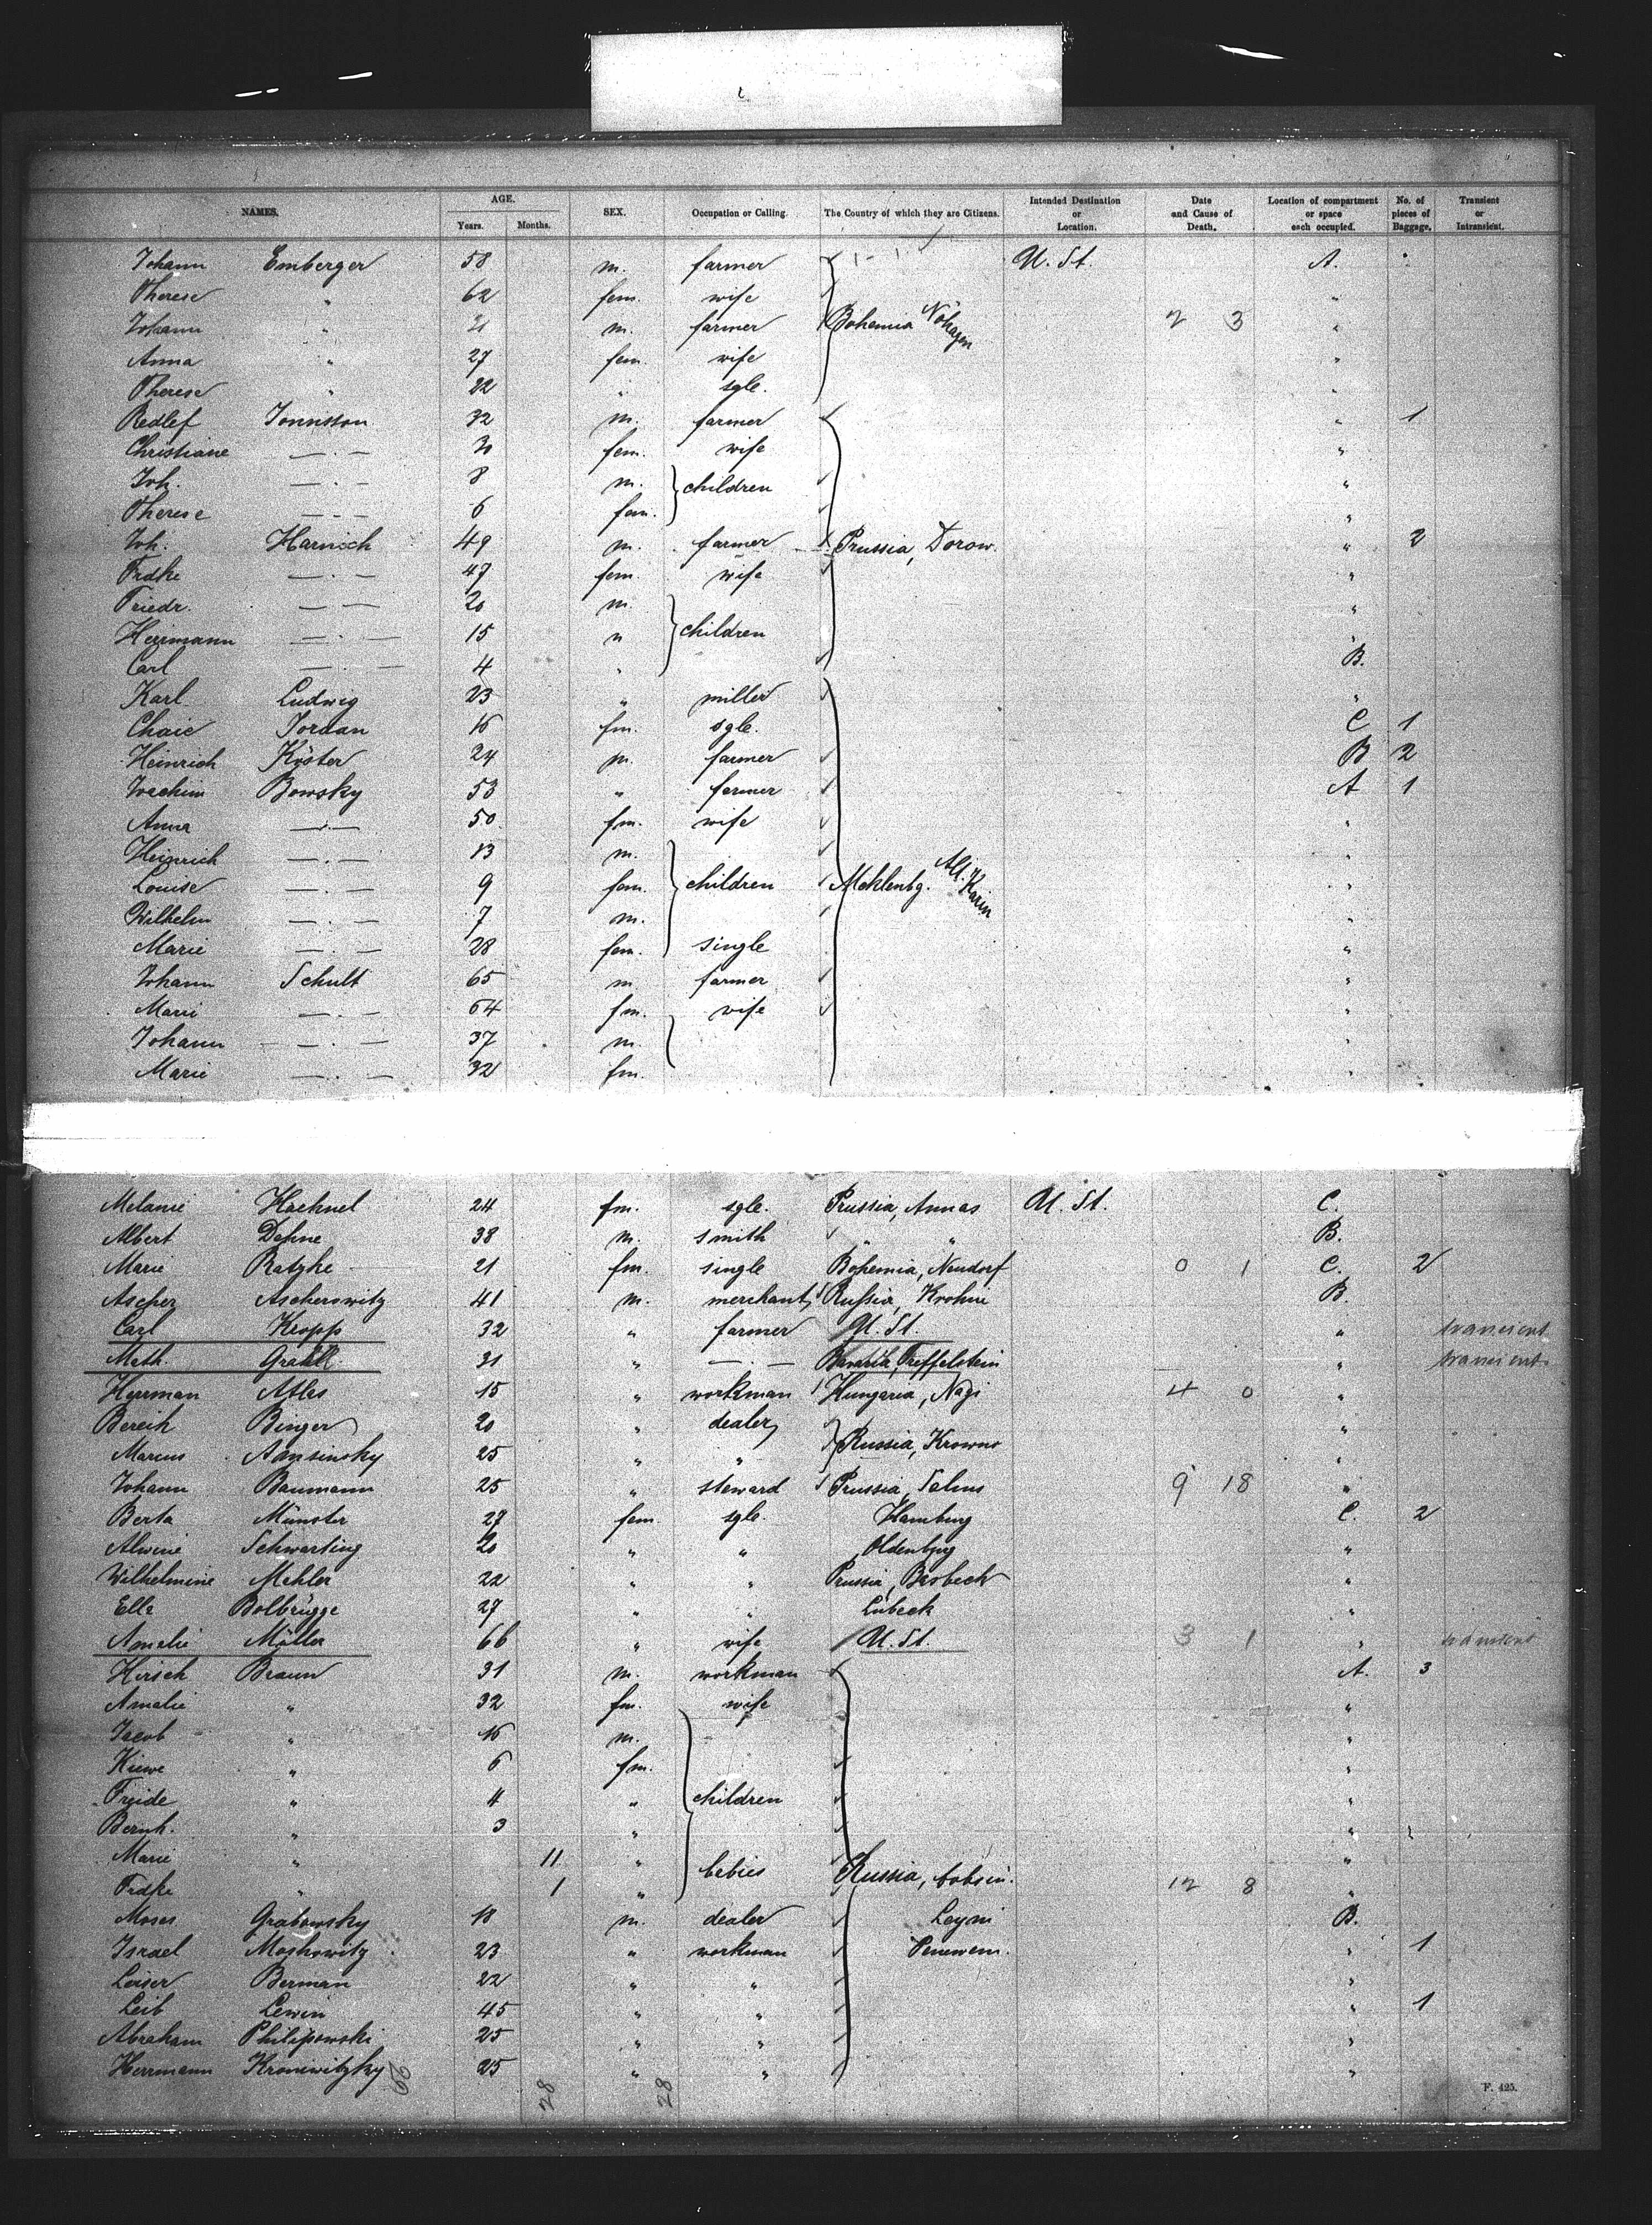 NAMES. AGE. Years. Months. SEX. Occupation or Calling. The Country of which they are Citizens. Intended Destination or Location. Date and Cause of Death. Location of compartment or space each occupied. No. of pieces of Baggage. Transient or Intransient.
Johann Emberger 58 m. farmer U. St. A.
Therese " 62 fem. wife "
Johann " 31 m. farmer Bohemia 2 3 "
Anna " 27 fem. wife "
Therese " 22 " sgle. "
Redlef Tonnsson 32 m. farmer " 1
Christiane —.— 30 fem. wife "
Joh. —.— 8 m. children "
Therese — - — 6 fem. "
Joh. Harnisch 49 m. farmer Prussia, Dorow. " 2
Frdke —.— 47 fem. wife "
Friedr. — — 20 m. "
Herrmann —.— 15 " children "
Carl —.— 4 " B.
Karl Ludwig 23 " miller "
Chaie Jordan 16 fm. sgle. C 1
Heinrich Köster 24 m. farmer B 2
Joachim Bowsky 53 " farmer A 1
Anna —.— 50 fm. wife "
Heinrich —.— 13 m. "
Louise —.— 9 fem. children Meklenbg. Alt. Karin "
Wilhelm —.— 7 m. "
Marie —.— 28 fem. single "
Johann Schult 65 m. farmer "
Marie —.— 64 fm. wife "
Johann —.— 37 m. "
Marie —.— 32 fm. "
Melanie Haehnel 24 fm. sgle. Prussia, Annas U. St. C.
Albert Dehne 38 m. smith " " B.
Marie Ratzke 21 fm. single Bohemia, Neudorf 0 1 C. 2
Ascher Ascherowitz 41 m. merchant Russia, B.
Carl Kropp 32 " farmer U. St. " transient
Math. Grahll 31 " —.— Bavaria, Treffelstein " transient.
Herrman Atlas 15 " workman Hungaria, Nagi 4 0 "
Bereih Binger 20 " dealer "
Marcus Aansinsky 25 " " Russia, Krowno "
Johann Baumann 25 " steward Prussia, Salms 9 18 "
Berta Münster 27 fem. sgle. Hamburg C. 2
Alwine Schwarting 20 " " Oldenburg "
Wilhelmine Mehler 22 " " Prussia, Basbeck "
Elle Bolbrügge 27 " " Lübeck "
Amalie Möller 66 " wife U. St. 3 1 " transient
Hirsch Braun 31 m. workman A. 3
Amalie " 32 fm. wife "
Jacob " 16 m. "
Kiewe " 6 fm. "
Freide " 4 " children "
Bernh. " 3 " "
Marie " 11 " "
Frdke " 1 " bebies Russia, 12 8 "
Moses Grabowsky 18 m. dealer B.
Israel Moskowitz 23 " workman " 1
Leiser Berman 22 " " "
Leib Lewin 45 " " " 1
Abraham Philipowski 25 " " "
Herrmann Kroniwitzky 25 " " "
28 28
F. 425.